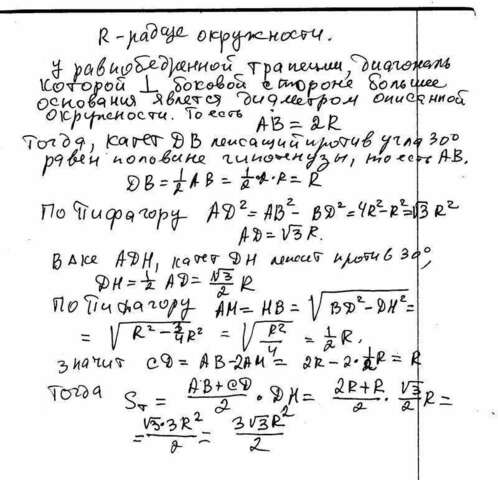 R - радиус окружности.
У равнобедренной трапеции, диагональ
которой ⊥ боковой стороне большее
основания является диаметром описанной
окружности. То есть
AB = 2R
Тогда, катет DB лежащий против угла 30°
равен половине гипотенузы, то есть AB.
DB = 1/2 AB = 1/2 · 2 · R = R
По Пифагору AD² = AB² - BD² = 4R² - R² = √3 R²
AD = √3 R.
В Δке ADH, катет DH лежит против 30°,
DH = 1/2 AD = √3/2 R
По Пифагору AM = HB = √(BD² - DH²) =
= √(R² - 3/4 R²) = √(R²/4) = 1/2 R.
значит CD = AB - 2AM = 2R - 2 · 1/2 R = R
Тогда Sт = (AB + CD)/2 · DH = (2R + R)/2 · √3/2 R =
= √3 · 3R²/2 = 3√3 R²/2